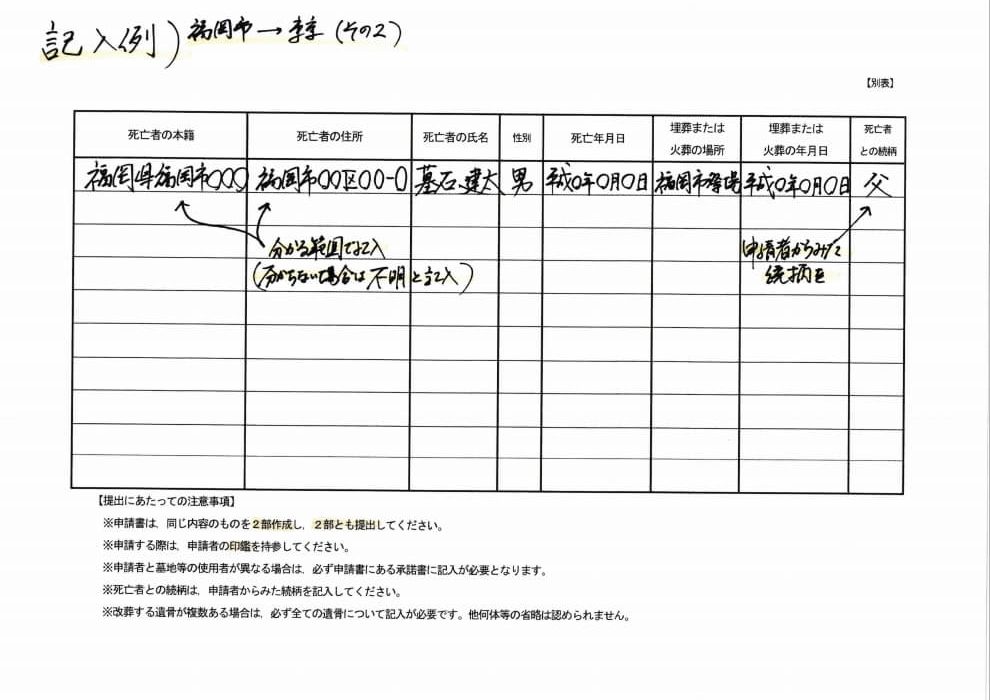 記入例) 福岡市→ (その2)
【別表】
死亡者の本籍 死亡者の住所 死亡者の氏名 性別 死亡年月日 埋葬または火葬の場所 埋葬または火葬の年月日 死亡者との続柄
福岡県福岡市〇〇〇 福岡市〇〇区〇〇-〇 墓石建太 男 平成〇年〇月〇日 福岡市斎場 平成〇年〇月〇日 父
分かる範囲で記入
(分からない場合は不明と記入)
申請者からみた
続柄を
【提出にあたっての注意事項】
※申請書は、同じ内容のものを2部作成し、2部とも提出してください。
※申請する際は、申請者の印鑑を持参してください。
※申請者と墓地等の使用者が異なる場合は、必ず申請書にある承諾書に記入が必要となります。
※死亡者との続柄は、申請者からみた続柄を記入してください。
※改葬する遺骨が複数ある場合は、必ず全ての遺骨について記入が必要です。他何体等の省略は認められません。